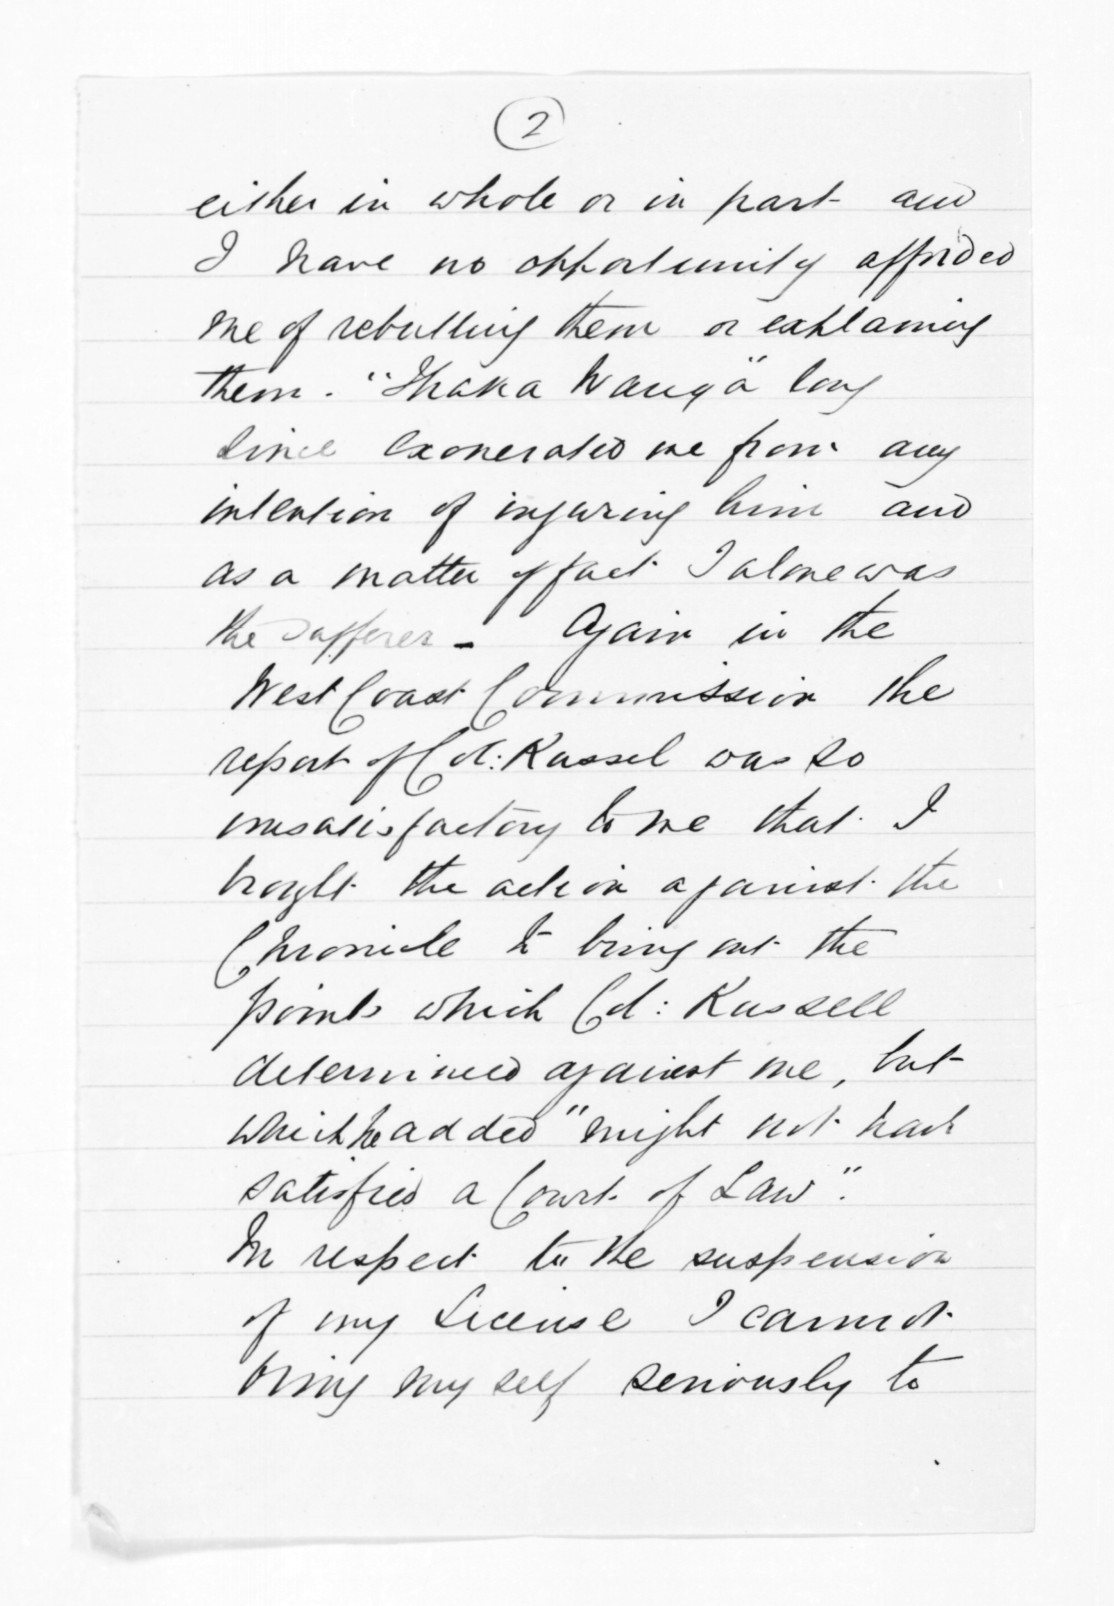 2
either in whole or in part and
I have no opportunity afforded
me of rebutting them or explaining
them. "Ihaka Wanga" long
since exonerated me from any
intention of injuring him and
as a matter of fact I alone was
the sufferer - Again in the
West Coast Commission the
report of Col: Russel was so
unsatisfactory to me that I
brought the action against the
Chronicle to bring out the
points which Col: Russell
determined against me, but
which he added "might not have
satisfied a Court of Law".
In respect to the suspension
of my License I cannot
bring my self seriously to